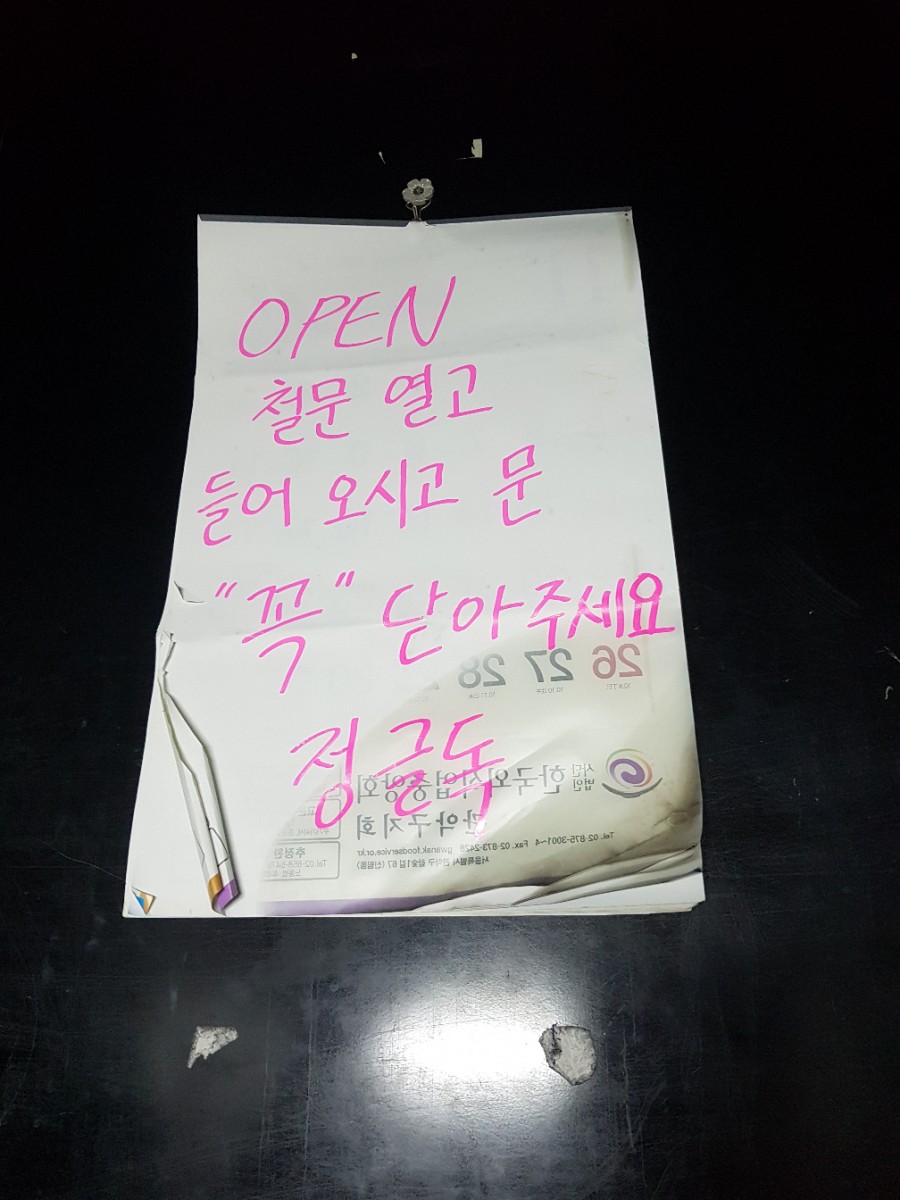 OPEN
철문 열고
들어 오시고 문
"꼭" 닫아주세요
정글독
26 27 28
사단법인 한국외식업중앙회
관악구지회
Tel. 02-875-3001~4 Fax. 02-873-2428 gwanak.foodservice.or.kr